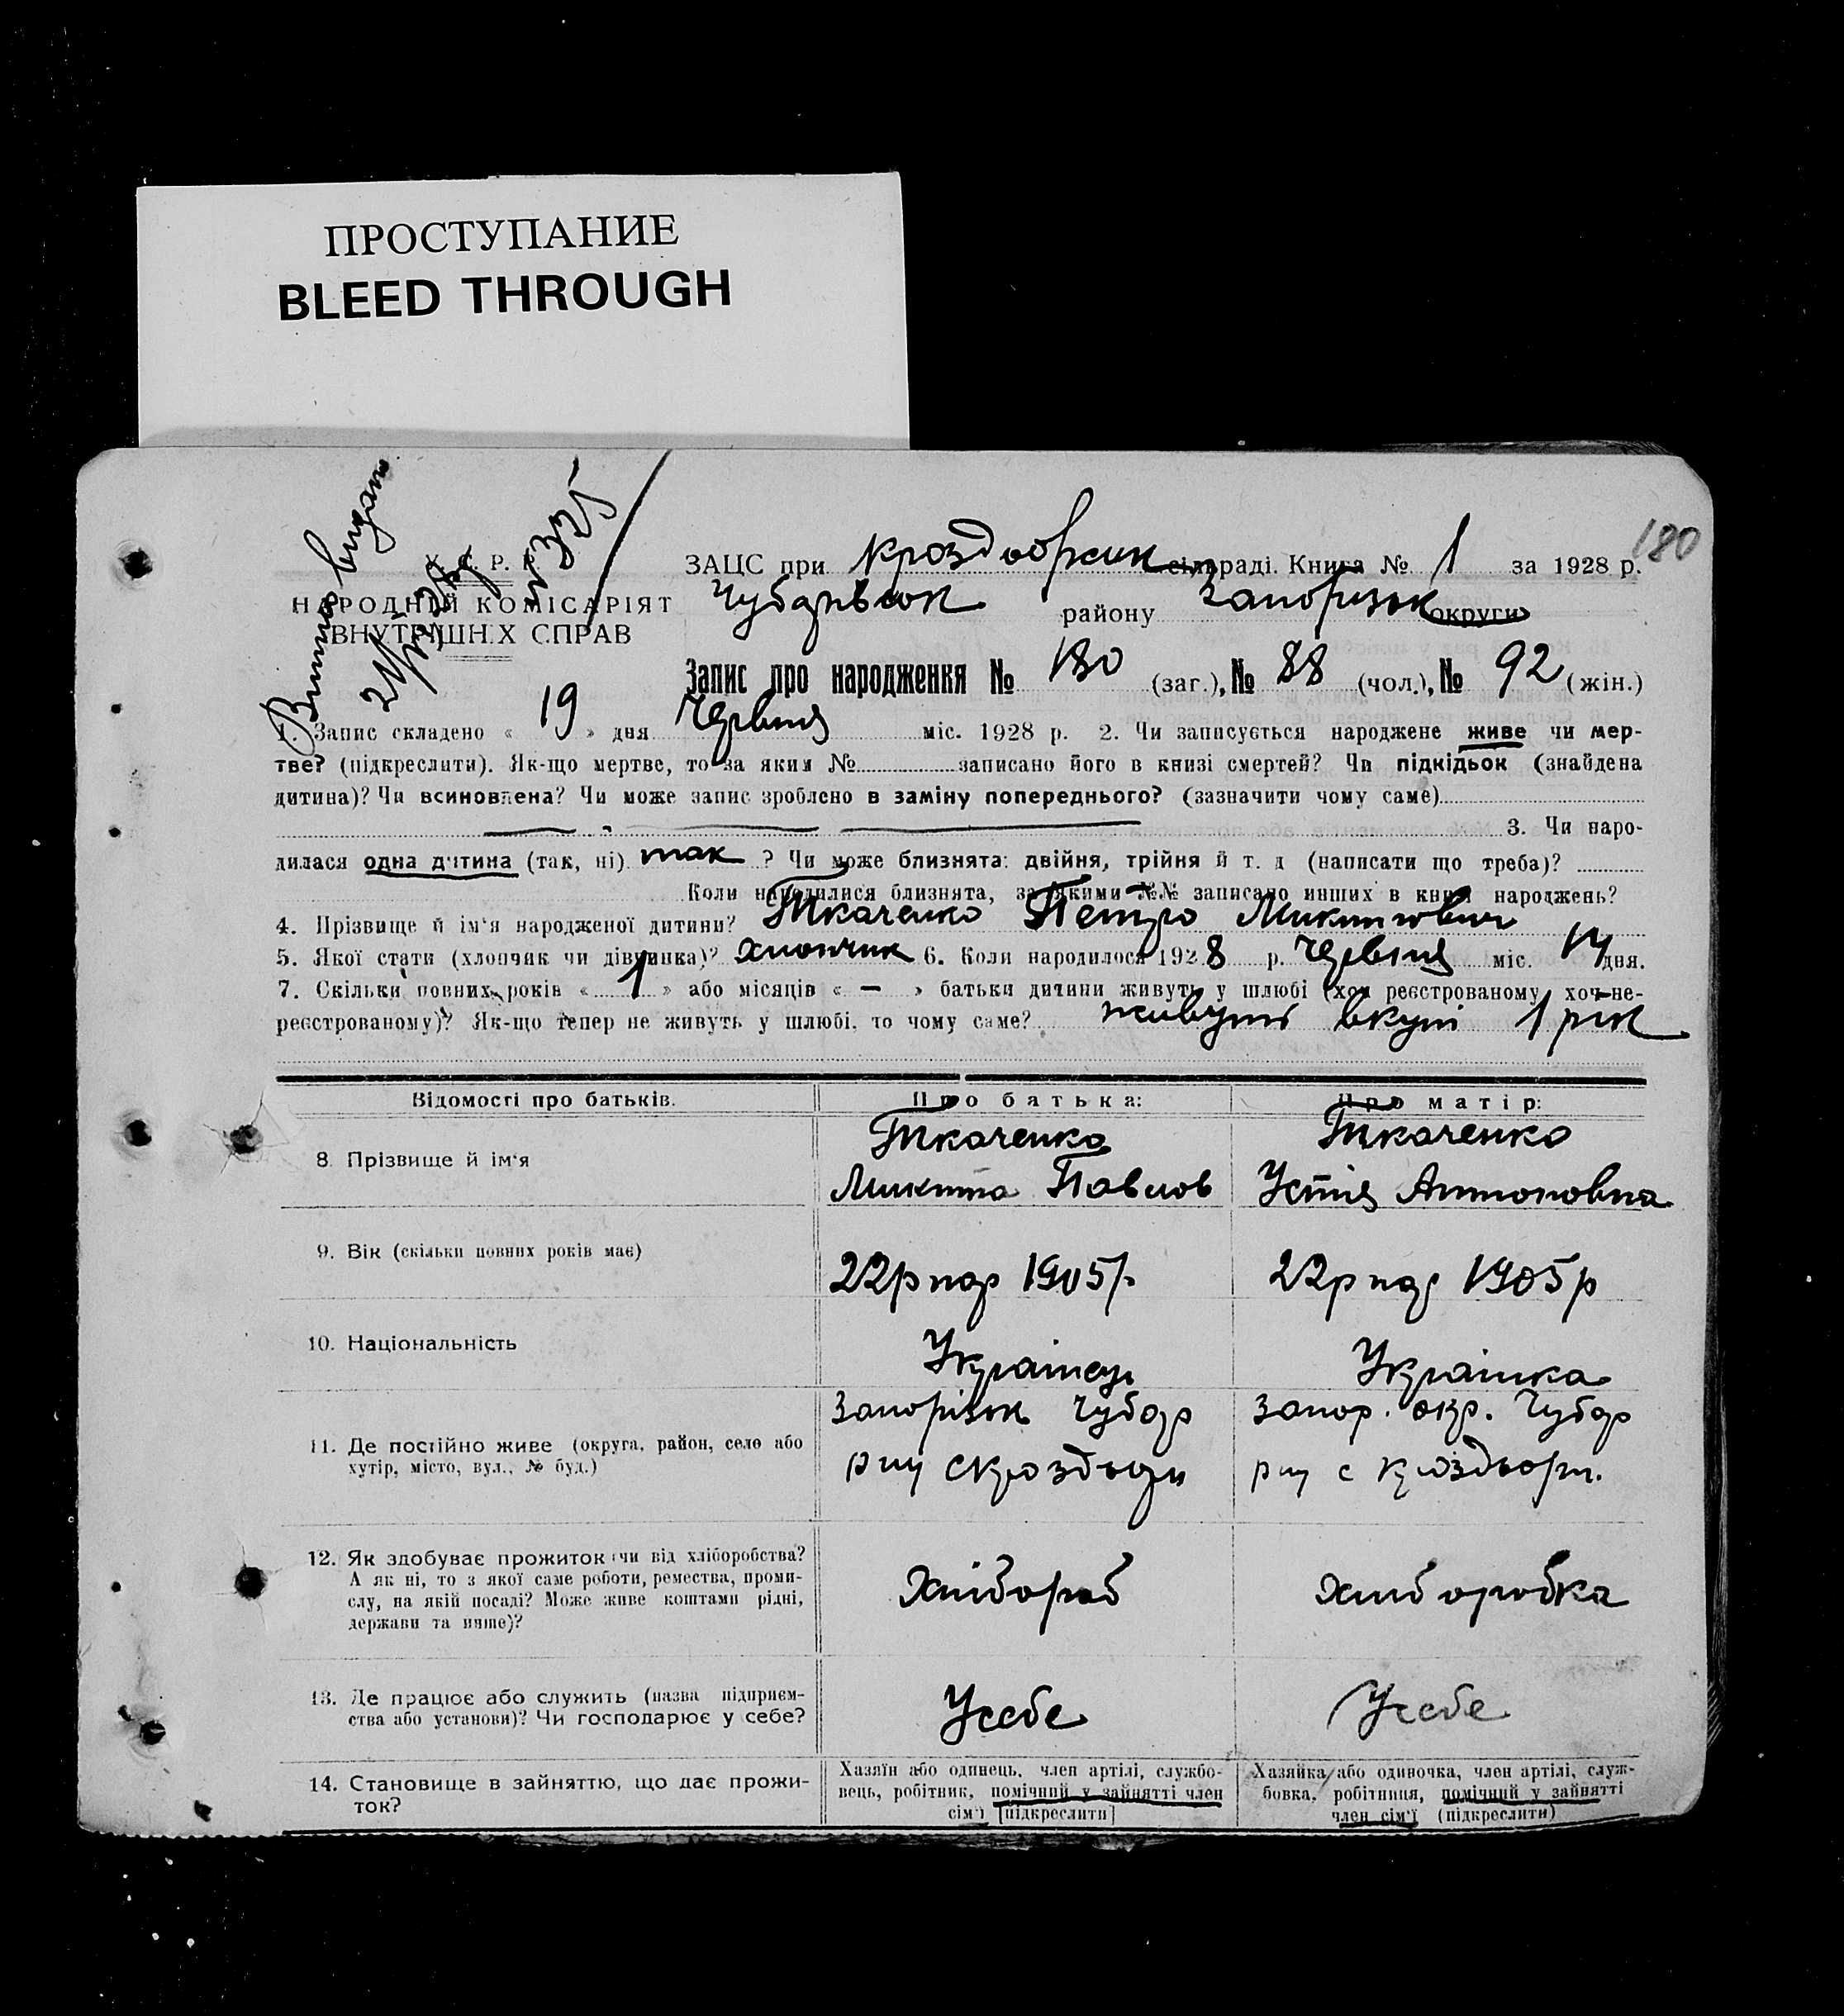 ПРОСТУПАНИЕ
BLEED THROUGH
180
Витяг видан
У. С. Р. Р.
НАРОДНІЙ КОМІСАРІЯТ
ВНУТРІШНІХ СПРАВ
ЗАЦС при сільраді. Книга № 1 за 1928 р.
району Запорізьк округи
Запис про народження № 180 (заг.), № 88 (чол.), № 92 (жін.)
1. Запис складено « 19 » дня Червня міс. 1928 р. 2. Чи записується народжене живе чи мер-
тве? (підкреслити). Як-що мертве, то за яким № записано його в книзі смертей? Чи підкідьок (знайдена
дитина)? Чи всиновлена? Чи може запис зроблено в заміну попереднього? (зазначити чому саме)
3. Чи наро-
дилася одна дитина (так, ні) так ? Чи може близнята: двійня, трійня й т. д (написати що треба)?
Коли народилися близнята, за якими №№ записано инших в книзі народжень?
4. Прізвище й ім'я народженої дитини? Ткаченко Петро Микитович
5. Якої стати (хлопчик чи дівчинка)? хлопчик 6. Коли народилося 1928 р. Червня міс. 14 дня.
7. Скільки повних років « 1 » або місяців « — » батьки дитини живуть у шлюбі (хоч реєстрованому, хоч не-
реєстрованому)? Як-що тепер не живуть у шлюбі, то чому саме? живуть вкупі 1 рік
Відомості про батьків. Про батька: Про матір:
Ткаченко Ткаченко
8. Прізвище й ім'я Микита Павлов Устія Антоновна
9. Вік (скільки повних років має) 22р нар 1905р. 22р нар 1905р
10. Національність Українець Українка
Запорізьк Чубар Запор. окр. Чубар
11. Де постійно живе (округа, район, село або
хутір, місто, вул., № буд.)
12. Як здобуває прожиток (чи від хліборобства?
А як ні, то з якої саме роботи, ремества, проми-
слу, на якій посаді? Може живе коштами рідні,
держави та инше)? Хлібороб хліборобка
13. Де працює або служить (назва підприєм-
ства або установи)? Чи господарює у себе? Усебе Усебе
14. Становище в зайняттю, що дає прожи-
ток?
Хазяїн або одинець, член артілі, службо-
вець, робітник, помічний у зайнятті член
сім'ї [підкреслити]
Хазяйка або одиночка, член артілі, служ-
бовка, робітниця, помічний у зайнятті
член сім'ї (підкреслити)